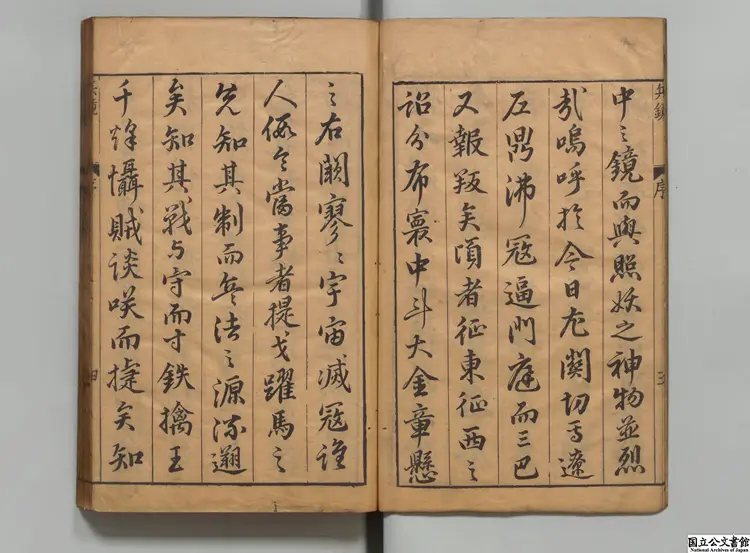 兵鏡 序 三
中之鏡而與照妖之神物並烈
哉嗚呼於今日尤關切焉遼
左鼎沸寇逼門庭而三巴
又報叛矣頃者征東征西之
詔分布寰中斗大金章懸
之右闕寥〻宇宙滅寇誰
人假令當事者提戈躍馬之
先知其制而兵法之源流遡
矣知其戰与守而寸鉄擒王
千烽懾賊談咲而捷矣知
兵鏡 序 四
国立公文書館
National Archives of Japan